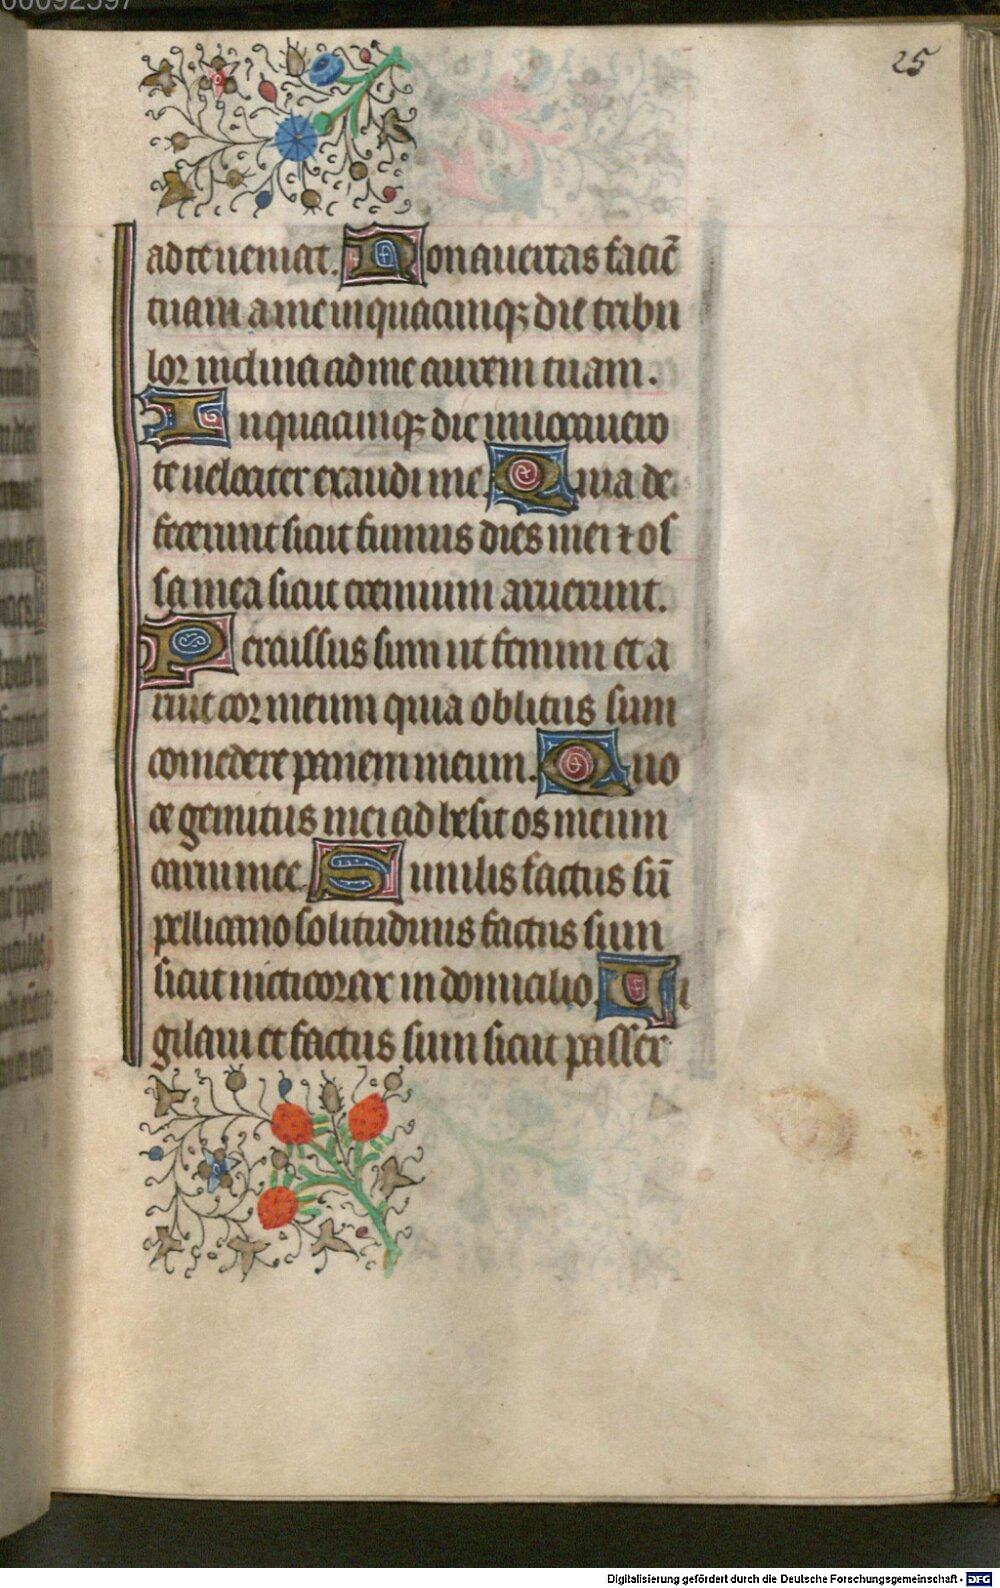 00092597
25
ad te ueniat. Non auertas faciē
tuam a me in quacumqꝫ die tribu
lor inclina ad me aurem tuam.
In quacumqꝫ die inuocauero
te uelociter exaudi me. Quia de
fecerunt sicut fumus dies mei ⁊ os
sa mea sicut cremium aruerunt.
Percussus sum ut fenum et a
ruit cor meum quia oblitus sum
comedere panem meum. A uo
ce gemitus mei adhesit os meum
carni mee. Similis factus sū
pellicano solitudinis factus sum
sicut nicticorax in domicilio. Vi
gilaui et factus sum sicut passer
Digitalisierung gefördert durch die Deutsche Forschungsgemeinschaft - DFG